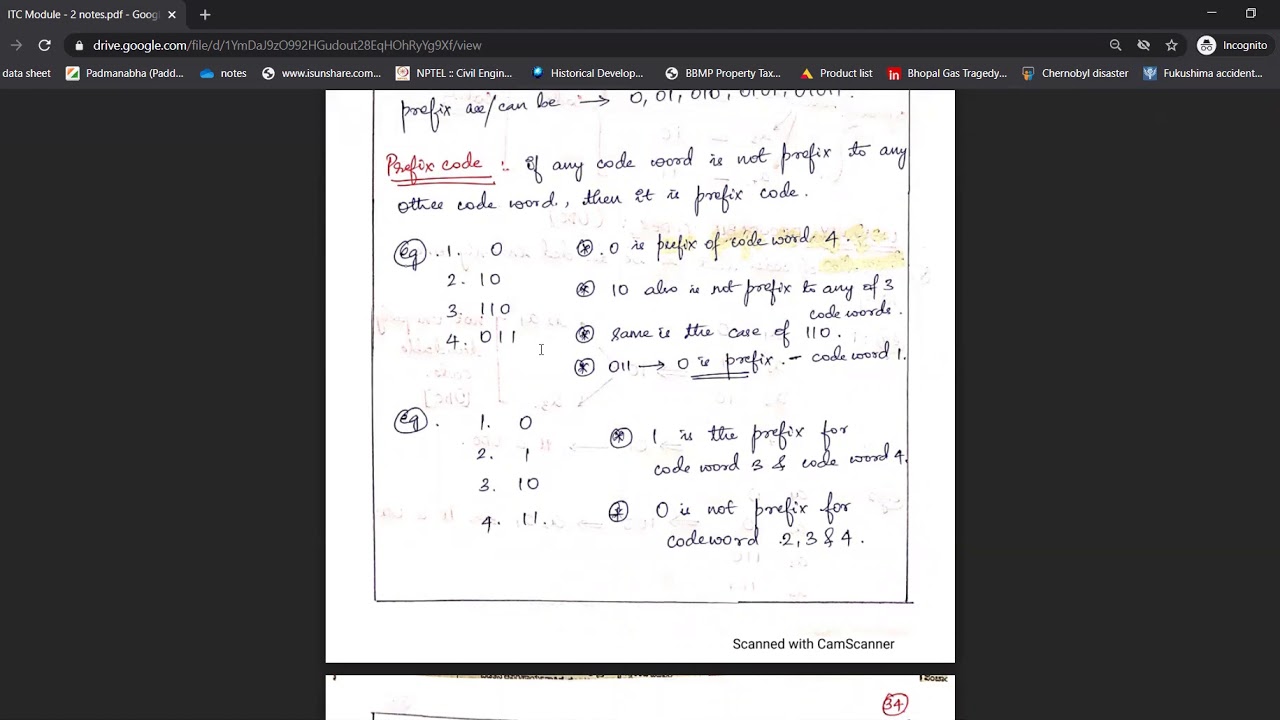 ITC Module - 2 notes.pdf - Goog
drive.google.com/file/d/1YmDaJ9zO992HGudout28EqHOhRyYg9Xf/view
Incognito
data sheet
Padmanabha (Padd...
notes
www.isunshare.com...
NPTEL :: Civil Engin...
Historical Develop...
BBMP Property Tax...
Product list
Bhopal Gas Tragedy...
Chernobyl disaster
Fukushima accident...
prefix are/can be → 0, 01, 010, 0101, 01011.
Prefix code : If any code word is not prefix to any
other code word., then it is prefix code.
eg. 1. 0
2. 10
3. 110
4. 011
* 0 is prefix of code word 4.
* 10 also is not prefix to any of 3
code words.
* same is the case of 110.
* 011 → 0 is prefix. - code word 1.
eg.
1. 0
2. 1
3. 10
4. 11.
* 1 is the prefix for
code word 3 & code word 4.
* 0 is not prefix for
codeword .2, 3 & 4.
Scanned with CamScanner
34